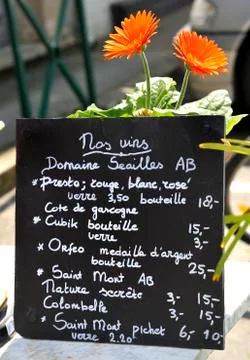 Nos vins
Domaine Seailles AB
* Presto; rouge, blanc, rosé
verre 3,50 bouteille 18,-
Cote de gascogne
* Cubik bouteille 15,-
verre 3,-
* Orfeo medaille d'argent
bouteille 25,-
* Saint Mont AB
Nature secrète 3,- 15,-
Colombelle 3,- 15,-
* Saint Mont pichet 6,- 10,-
verre 2.20